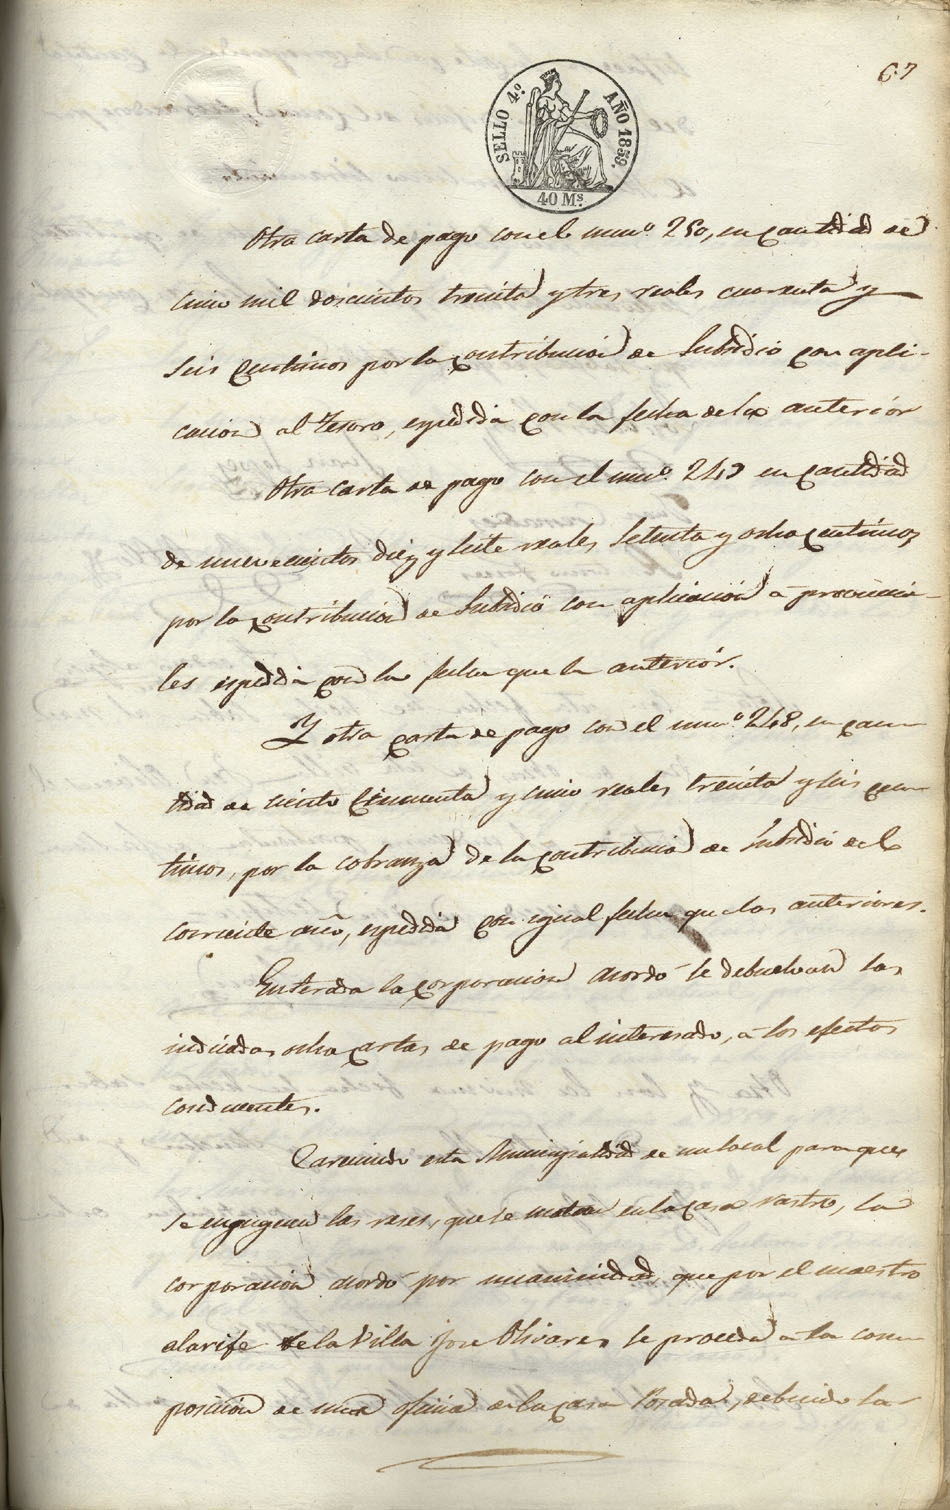 67
SELLO 4º. AÑO 1859.
40 Ms.
Otra carta de pago con el numº. 250, en cantidad de
cinco mil doscientos treinta y tres reales cuarenta y
seis centimos por la contribucion de Subsidio con apli-
cacion al Tesoro, espedida con la fecha de la anteriór
Otra carta de pago con el numº. 249 en cantidad
de nuevecientos diez y siete reales setenta y ocho centimos
por la contribucion de Subsidio con aplicación á provincia-
les espedida con la fecha que la anteriór.
Y otra carta de pago con el numº 248, en can-
tidad de ciento cincuenta y cinco reales treinta y seis cen-
timos, por la cobranza de la contribucion de Subsidio del
corriente año, espedida con igual fecha que las anteriores.
Enterada la corporacion acordó se debuelvan las
indicadas ocho cartas de pago al interesado, a los efectos
conducentes.
Careciendo esta Municipalidad de un local para que
se enjuguen las reses, que se matan en la casa rastro, la
corporacion acordó por unanimidad que por el maestro
alarife de la Villa José Olivares se proceda a la com-
posición de una oficina de la casa Posada, debiendo la